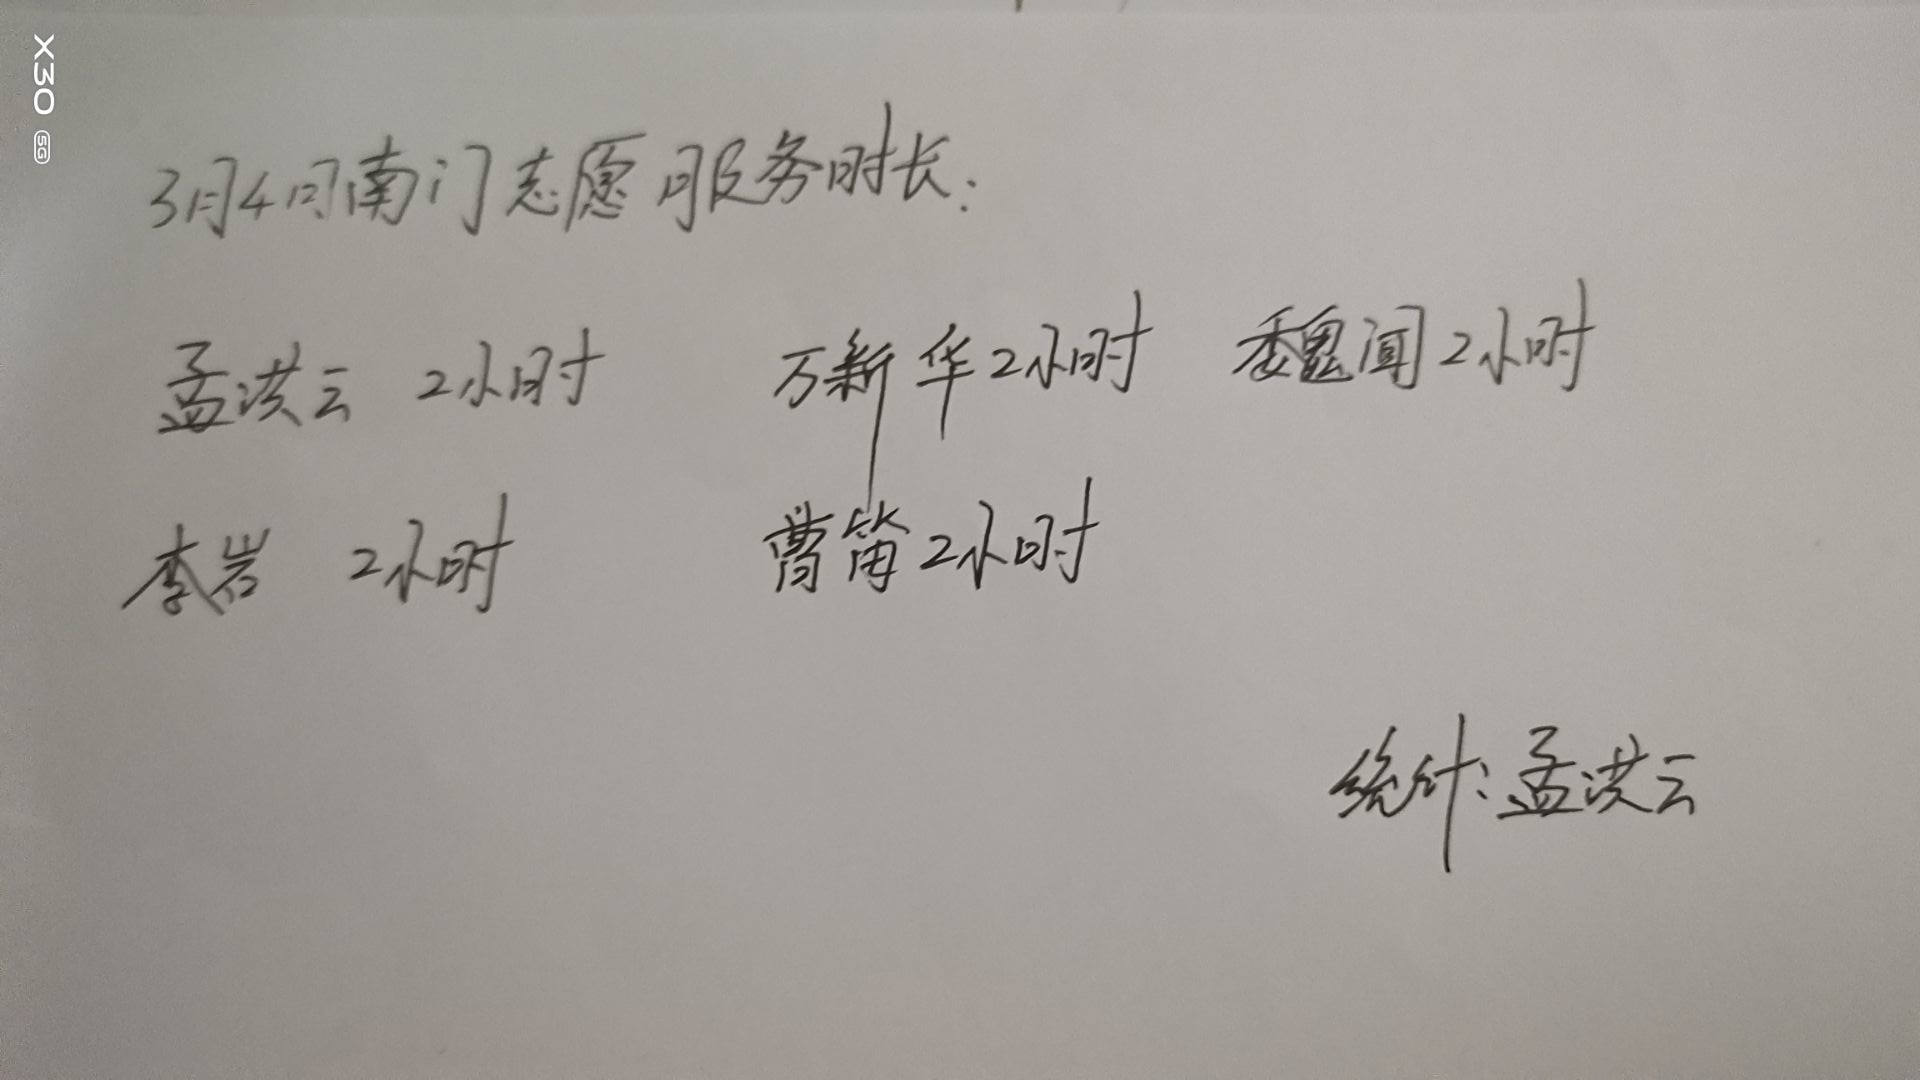 X30 5G
3月4日南门志愿服务时长:
孟洪云 2小时 万新华2小时 魏闻2小时
李岩 2小时 曹笛2小时
统计:孟洪云